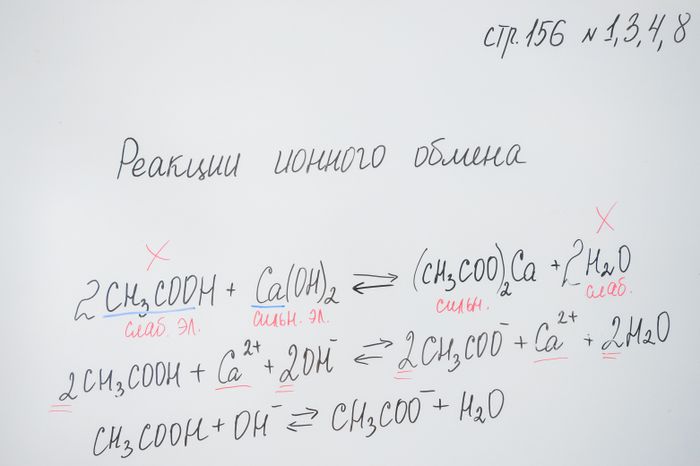 стр. 156 № 1, 3, 4, 8
Реакции ионного обмена
X X
2CH₃COOH + Ca(OH)₂ ⇄ (CH₃COO)₂Ca + 2H₂O
слаб. эл. сильн. эл. сильн. слаб.
2CH₃COOH + Ca²⁺ + 2OH⁻ ⇄ 2CH₃COO⁻ + Ca²⁺ + 2H₂O
CH₃COOH + OH⁻ ⇄ CH₃COO⁻ + H₂O